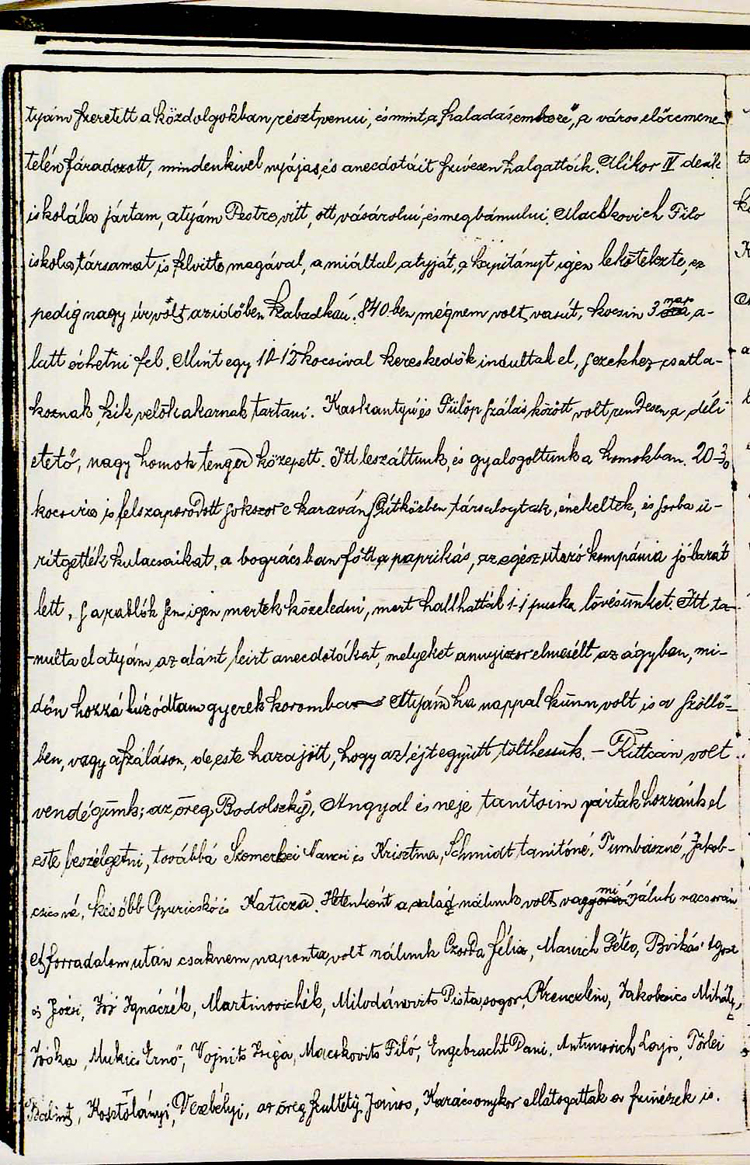 tyám szeretett a közdolgokban résztvenni, és mint a haladás embere, a város előremene-
telén fáradozott, mindenkivel nyájas, és anecdotáit szívesen halgatták. Mikor IV deák
iskolába jártam, atyám Pestre vitt, ott vásárolni, és megbámulni. Mackovich Filo
iskolatársamat is felvitte magával, a miáltal atyját, a kapitányt igen lekötelezte, ez
pedig nagy úr volt az időben Szabadkán. 840-ben még nem volt vasút, kocsin 3 nap a-
latt érhetni fel. Mint egy 10-12 kocsival kereskedők indultak el, s ezekhez csatla-
koznak, kik velök akarnak tartani. Kaskantyú és Fülöp szálás között volt rendesen a déli
etető, nagy homok tenger közepett. Itt leszáltunk, és gyalogoltunk a homokban. 20-30
kocsira is felszaporodott sokszor e karaván. Útközben társalogtak, énekeltek, és sorba ü-
rítgették kulacsaikat, a bográcsban főtt a paprikás, az egész utazó kompánia jó barát
lett, s a rablók sem igen mertek közeledni, mert hallhatták 1-1 puska lövésünket. Itt ta-
nulta el atyám, az alánt leirt anecdotákat, melyeket annyiszor elmesélt az ágyban, mi-
dőn hozzá húzódtam gyerek koromba. Atyám ha nappal künn volt is a szöllő-
ben, vagy a szálláson, de este haza jött, hogy az éjt együtt tölthessük. – Ritkán volt
vendégünk; az öreg Bodolszky, Angyal és neje tanítóim jártak hozzánk el
este beszélgetni, továbbá Szemerkei Nancsi és Krisztina, Schmidt tanítóné, Tumbászné, Jakob-
csicsné, később Gyuricskó és Katicza. Hetenként a család nálunk volt vagy mi náluk vacsorán
A forradalom után csaknem naponta volt nálunk Czorda Félix, Manich Péter,
és Józsi, Joó Ignáczék, Martinovichék, Milodánovits Pista sogor, Jakobcsics Mihály,
Jóska, Mukics Ernő, Vojnits Zsiga, Macskovits Filó, Engebracht Dani, Antunovich Lajos, Törlei
Bálint, Kosztolányi, Vezebélyi, az öreg János, Karácsonykor ellátogattak a színészek is.